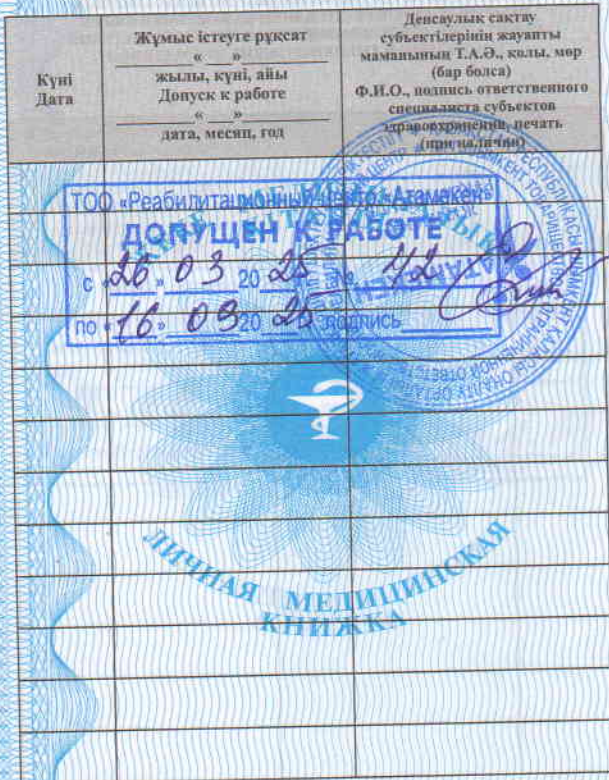 Күні
Дата
Жұмыс істеуге рұқсат
« »
жылы, күні, айы
Допуск к работе
« »
дата, месяц, год
Денсаулық сақтау
субъектілерінің жауапты
маманының Т.А.Ә., қолы, мөр
(бар болса)
Ф.И.О., подпись ответственного
специалиста субъектов
здравоохранения, печать
(при наличии)
ТОО «Реабилитационный центр «Атамекен»
ДОПУЩЕН К РАБОТЕ
с «26» 03 2025 № 42
по «16» 09 2025 подпись
ЛИЧНАЯ МЕДИЦИНСКАЯ
КНИЖКА